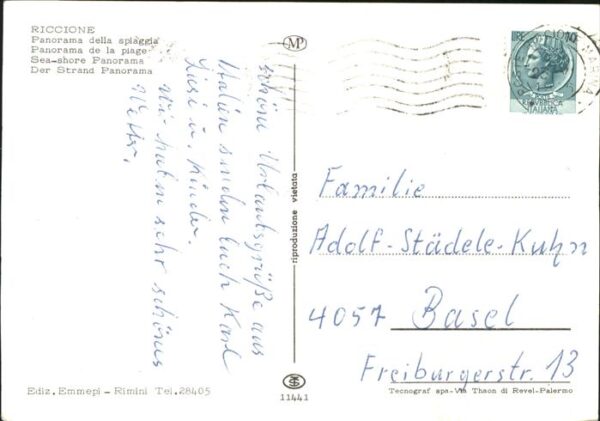 RICCIONE
Panorama della spiaggia
Panorama de la plage
Sea-shore Panorama
Der Strand Panorama
schöne Urlaubsgrüße aus
Italien senden Euch Karl
Liesi u. Kinder.
Wir haben sehr schönes
Wetter.
MP
riproduzione vietata
S
11441
MARINA
ITALIANA
Familie
Adolf-Städele-Kuhn
4057 Basel
Freiburgerstr. 13
Ediz. Emmepi - Rimini Tel. 28405
Tecnograf spa-Via Thaon di Revel-Palermo